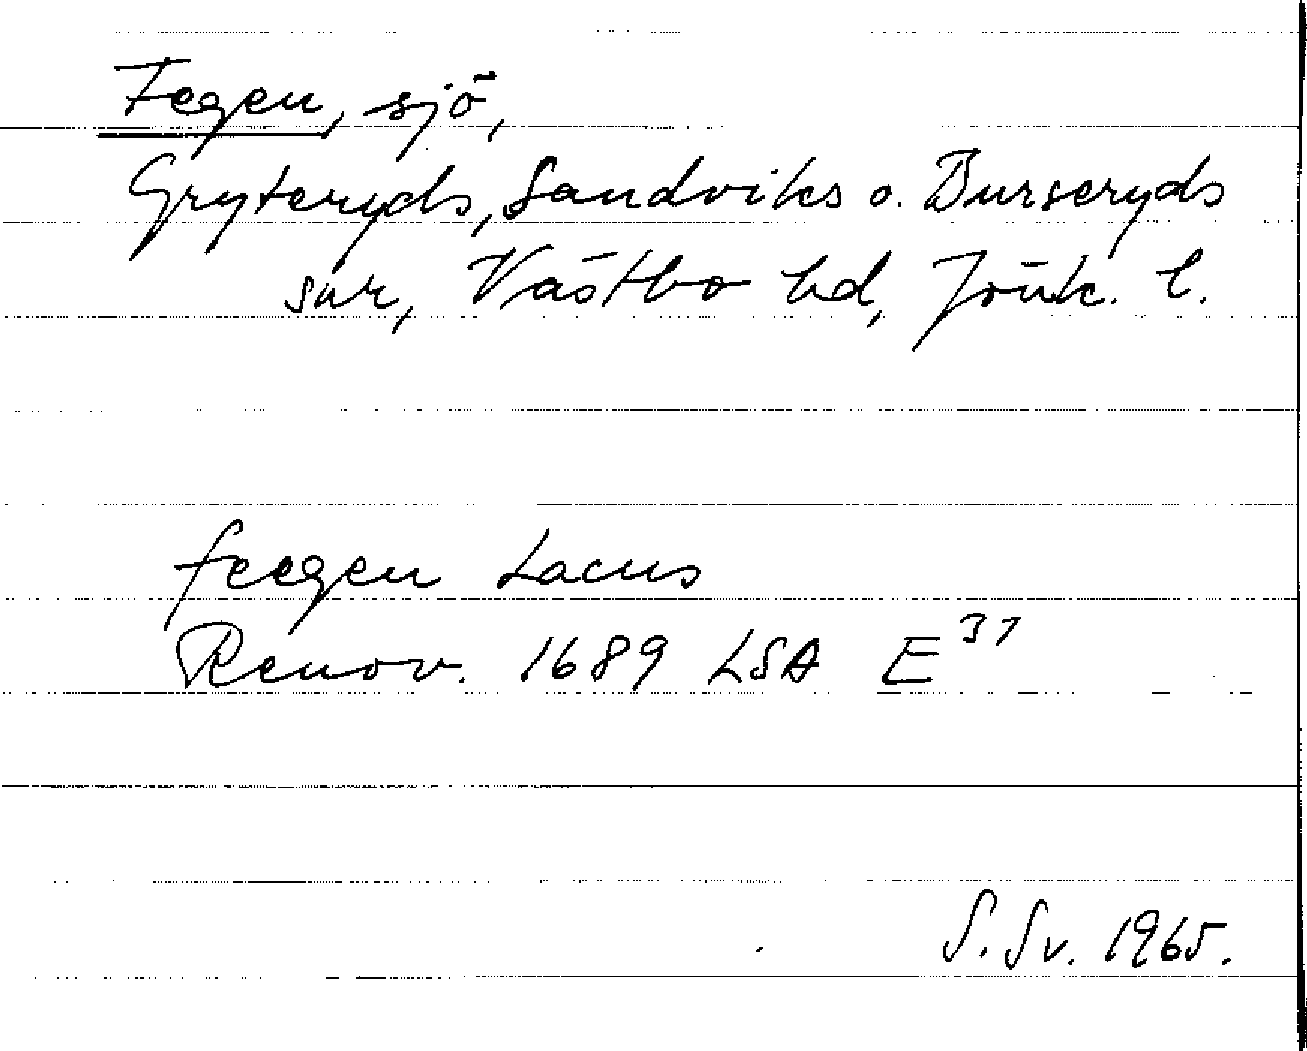 Fegen, sjö,
Gryteryds, Sandviks o. Burseryds
snr, Västbo hd, Jönk. l.
feegen Lacus
Renov. 1689 LSA E³⁷
S. Sv. 1965.